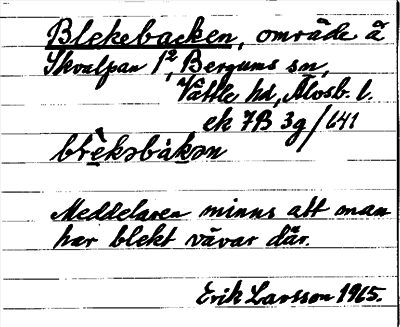 Blekebacken, område å
Skvalpan 1², Bergums sn,
Vättle hd, Älvsb. l.
ek 7B 3g/641
blèkəbàkən
Meddelaren minns att man
har blekt vävar där.
Erik Larsson 1965.